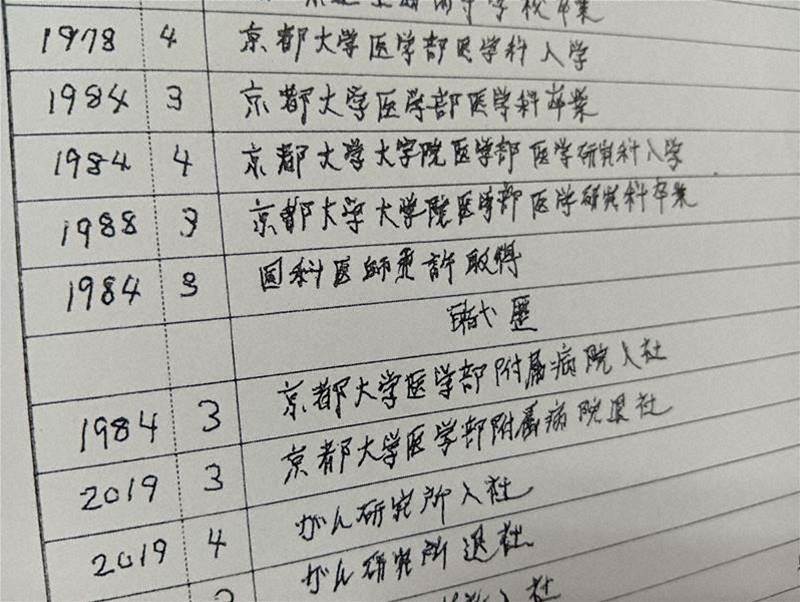 学校卒業
1978 4 京都大学医学部医学科入学
1984 3 京都大学医学部医学科卒業
1984 4 京都大学大学院医学部医学研究科入学
1988 3 京都大学大学院医学部医学研究科卒業
1984 3 国科医師免許取得
職歴
1984 3 京都大学医学部附属病院入社
2019 3 京都大学医学部附属病院退社
2019 4 がん研究所入社
がん研究所退社
入社